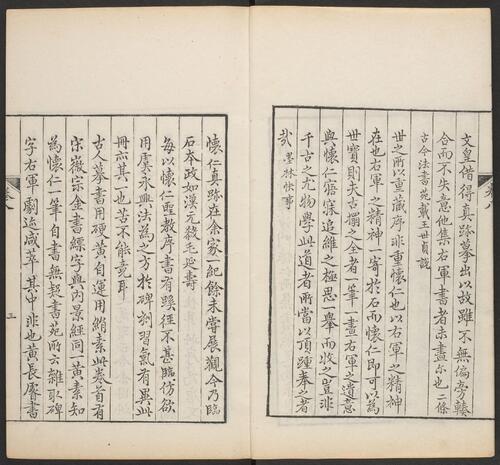 文皇借得真跡摹出以故雖不無偏旁輳
合而不失意他集右軍書者未盡尓也二條
古今法書苑載王世貞說
世之所以重藏序非重懷仁也以右軍之精神
在也右軍之精神一寄於石而懷仁即可以為
世寶則夫古搨之全者一筆一畫右軍之遺意
與懷仁寤寐追維之極思一舉而收之豈非
千古之尤物學此道者所當以頂踵奉之者
哉 墨林快事
懷仁真跡在余家一紀餘未嘗展觀今乃臨
石本政如漢元後毛延壽
每以懷仁聖教序書有蹊徑不甚臨仿欲
用虞永興法為之方於碑刻習氣有異此
冊亦其一也苦不能竟耳
古人摹書用硬黃自運用絹素此卷首有
宋徽宗金書縹字與內景經同一黃素知
為懷仁一筆自書無契書苑所云雜取碑
字右軍劇迹咸萃其中非也黃長睿書
卷八
三